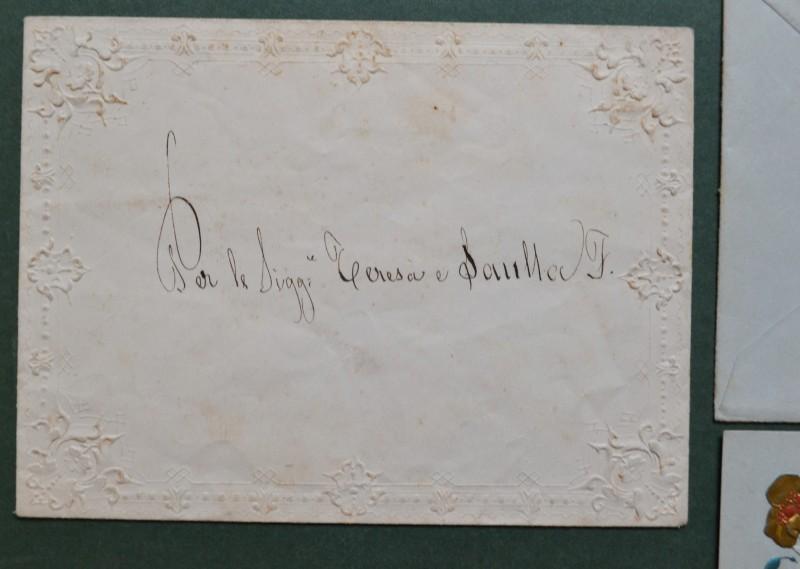 Per le Sigg.e Teresa e Saulla F.